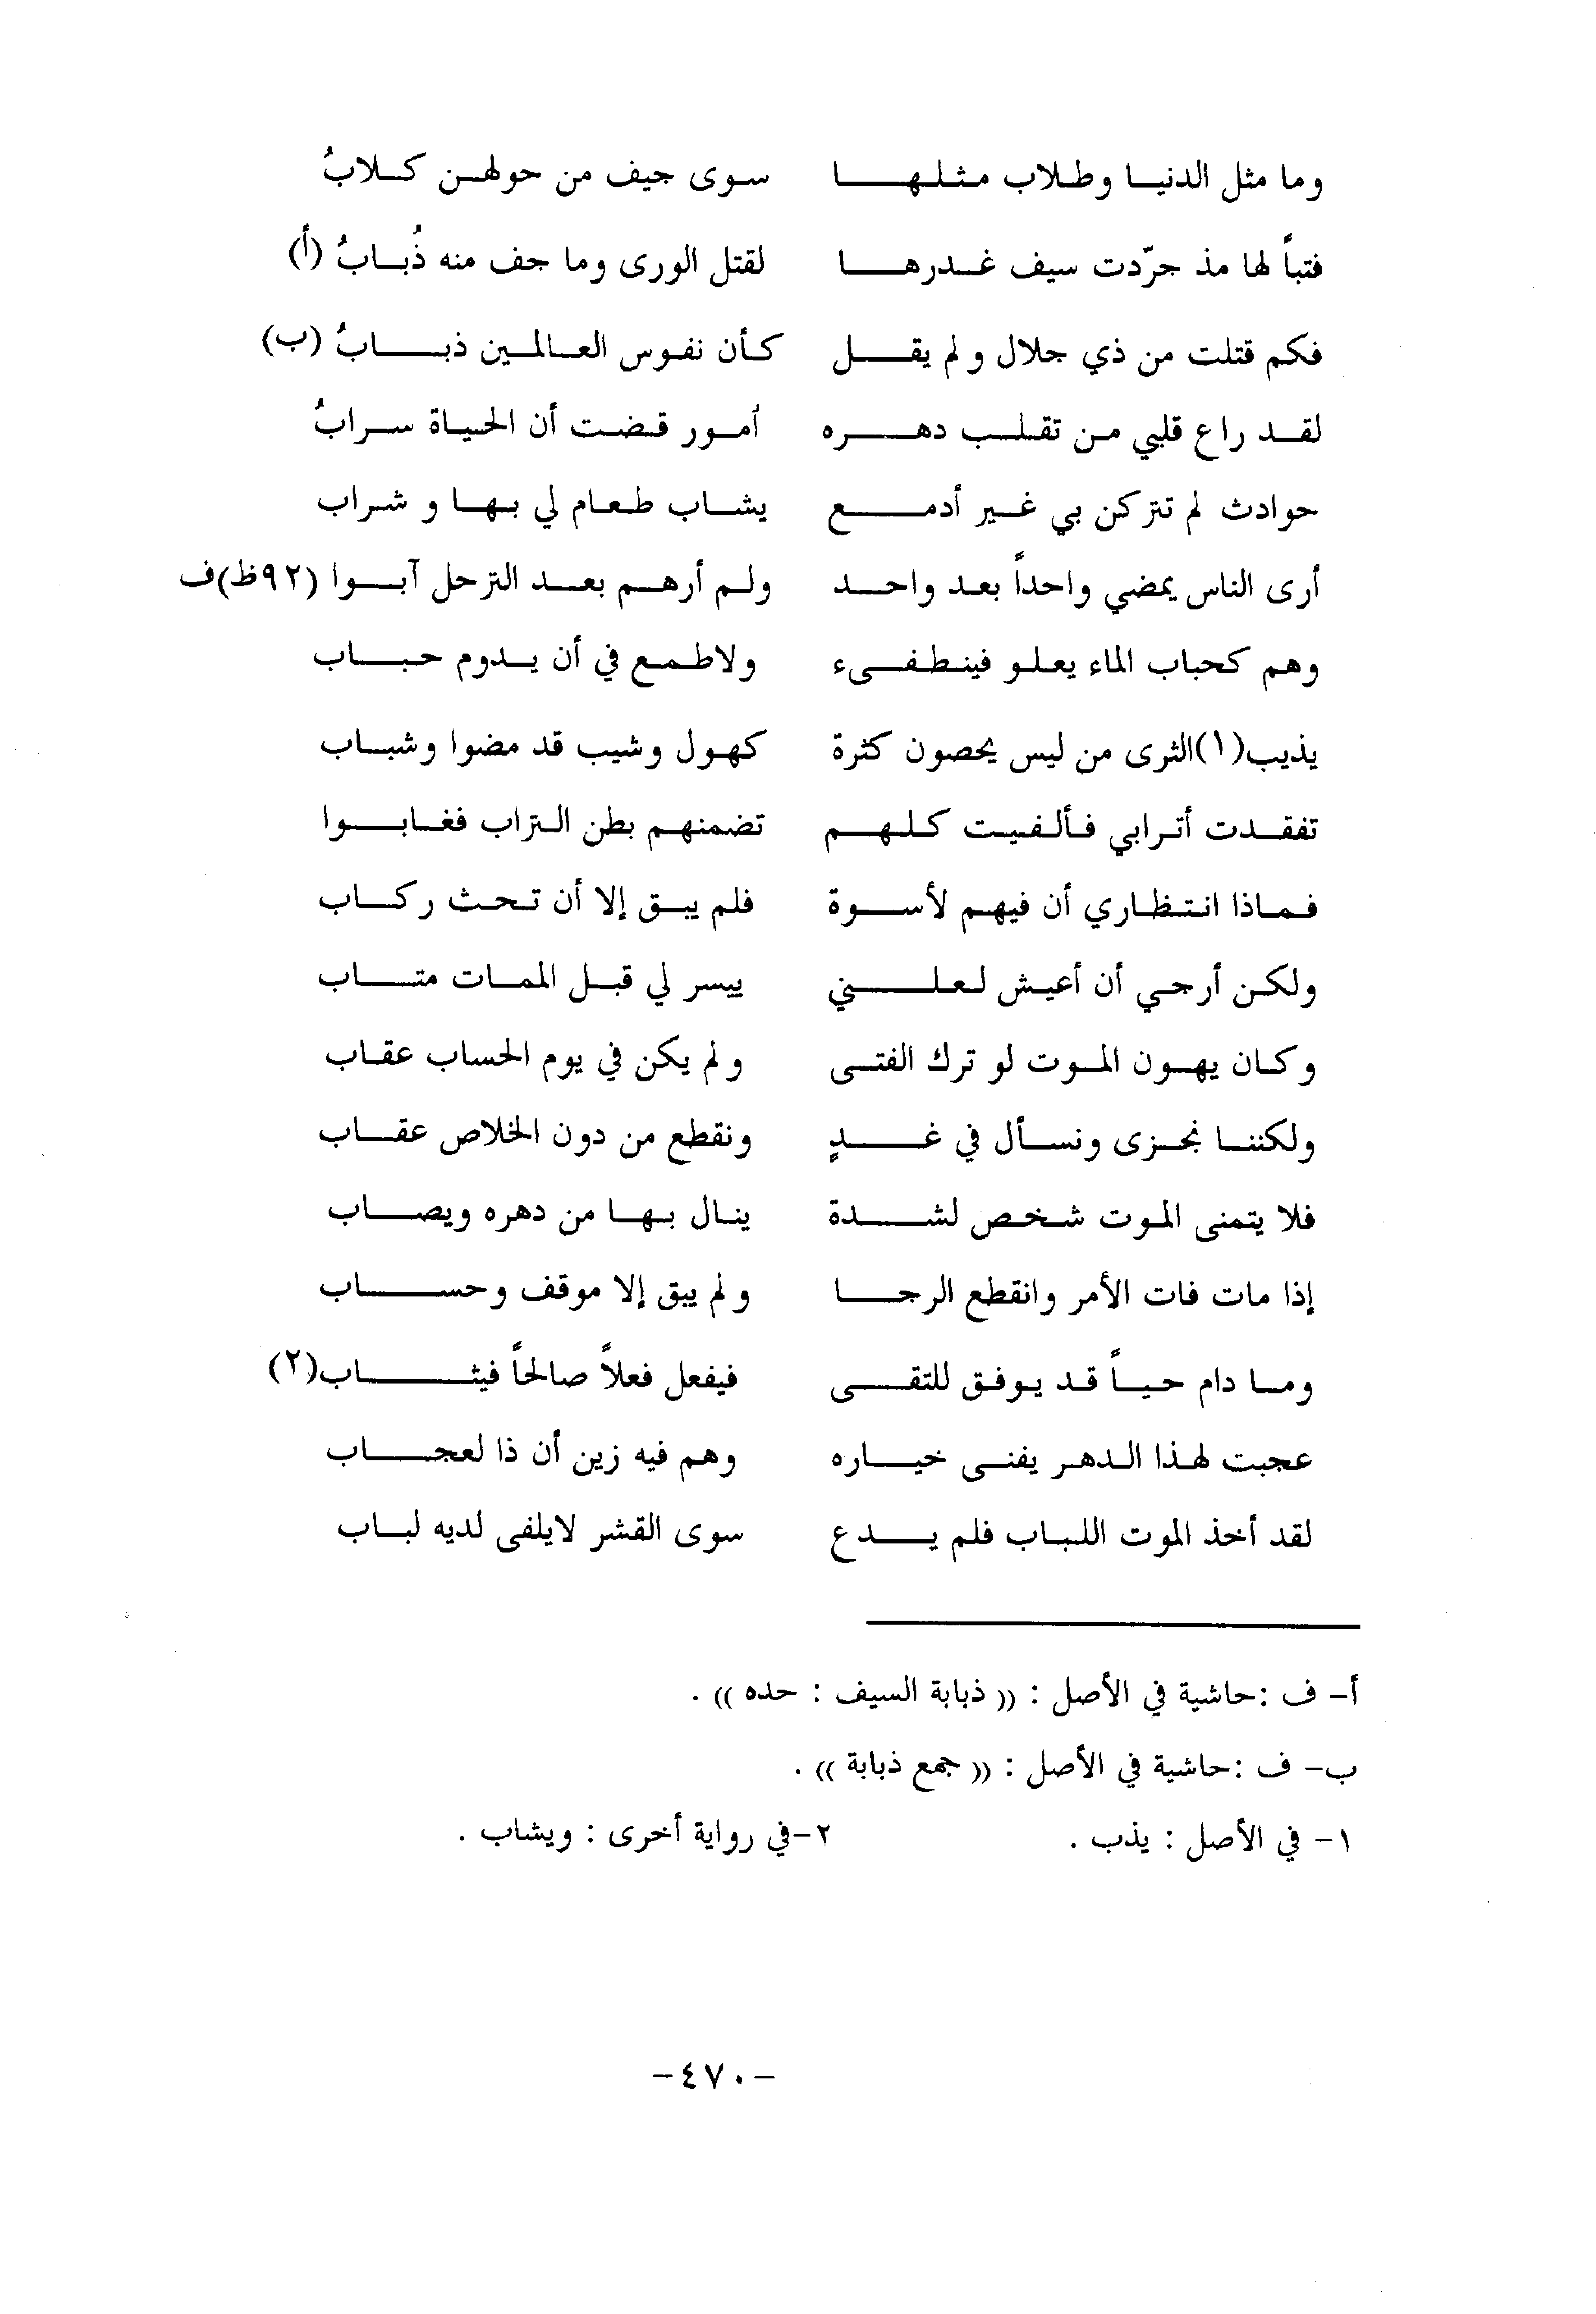 وما مثل الدنيا وطلاب مثلها سوى جيف من حولهن كلابُ
فتباً لها مذ جرّدت سيف غدرها لقتل الورى وما جف منه ذُبابُ (أ)
فكم قتلت من ذي جلال ولم يقل كأن نفوس العالمين ذبابُ (ب)
لقد راع قلبي من تقلب دهره أمور قضت أن الحياة سرابُ
حوادث لم تتركن بي غير أدمع يشاب طعام لي بها و شراب
أرى الناس يمضي واحداً بعد واحد ولم أرهم بعد الترحل آبوا (٩٢ظ)ف
وهم كحباب الماء يعلو فينطفىء ولاطمع في أن يدوم حباب
يذيب(١)الثرى من ليس يحصون كثرة كهول وشيب قد مضوا وشباب
تفقدت أترابي فألفيت كلهم تضمنهم بطن التراب فغابوا
فماذا انتظاري أن فيهم لأسوة فلم يبق إلا أن تحث ركاب
ولكن أرجي أن أعيش لعلني ييسر لي قبل الممات متاب
وكان يهون الموت لو ترك الفتى ولم يكن في يوم الحساب عقاب
ولكننا نجزى ونسأل في غدٍ ونقطع من دون الخلاص عقاب
فلا يتمنى الموت شخص لشدة ينال بها من دهره ويصاب
إذا مات فات الأمر وانقطع الرجا ولم يبق إلا موقف وحساب
وما دام حياً قد يوفق للتقى فيفعل فعلاً صالحاً فيثاب(٢)
عجبت لهذا الدهر يفنى خياره وهم فيه زين أن ذا لعجاب
لقد أخذ الموت اللباب فلم يدع سوى القشر لايلفى لديه لباب
أ- ف :حاشية في الأصل : (( ذبابة السيف : حده )) .
ب- ف :حاشية في الأصل : (( جمع ذبابة )) .
١- في الأصل : يذب . ٢-في رواية أخرى : ويشاب .
-٤٧٠-